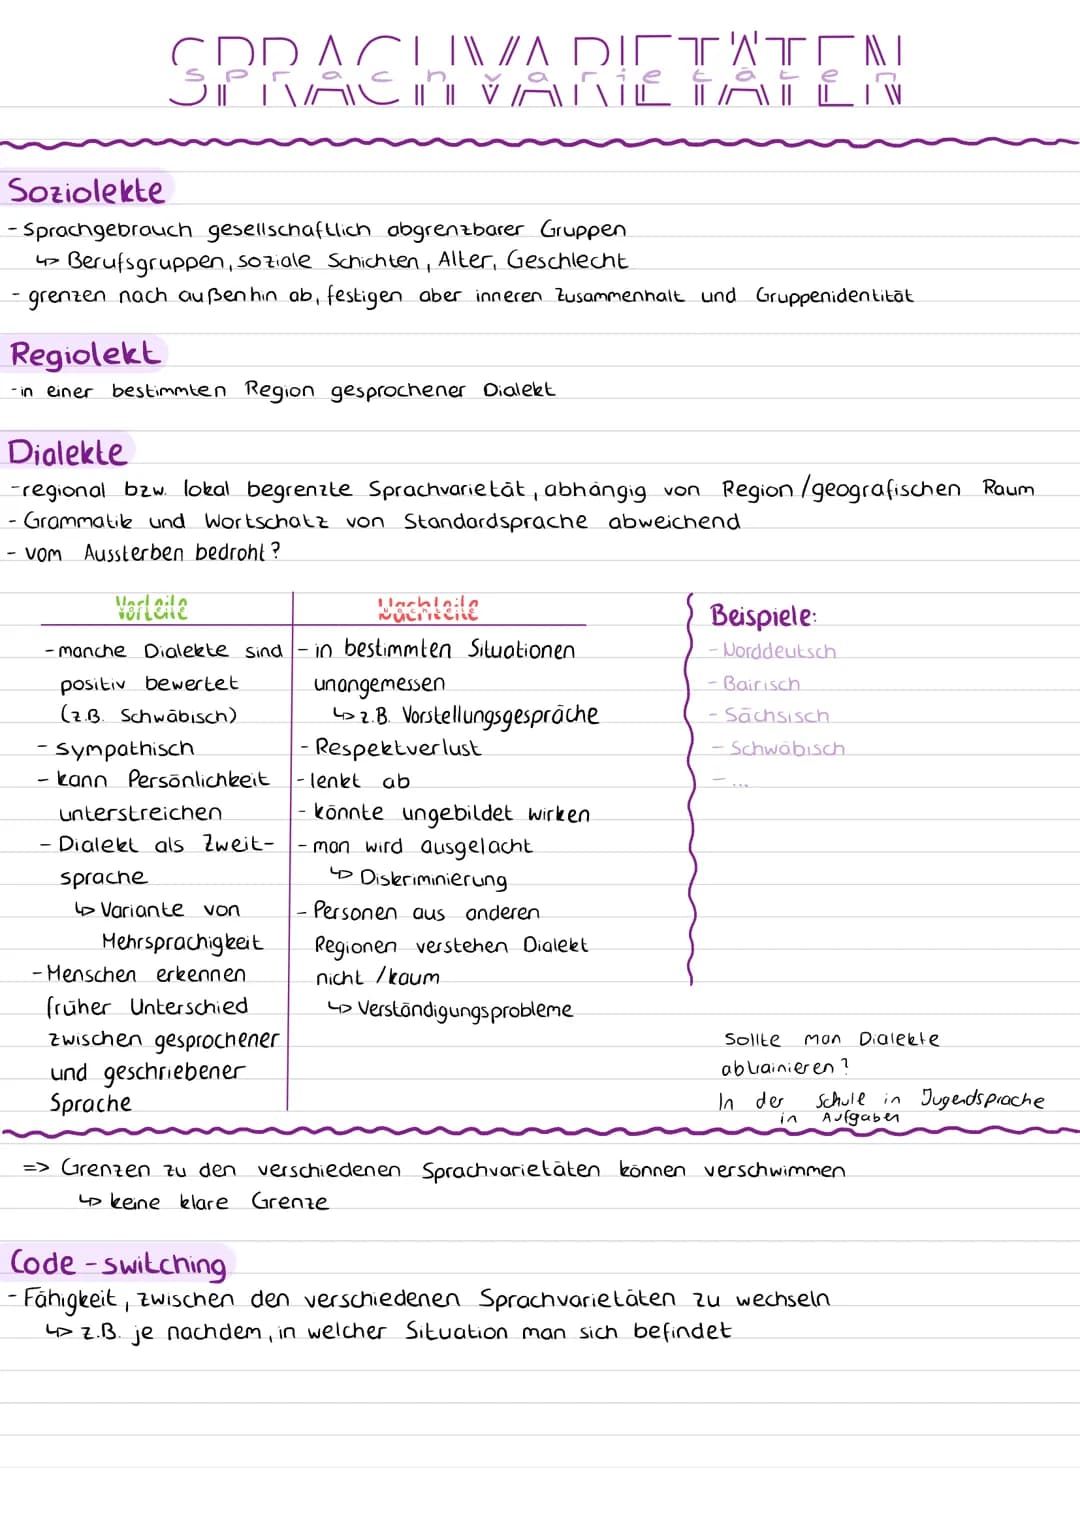 SPRACHVARIETÄTEN
Sprachvarietäten
Soziolekte
- Sprachgebrauch gesellschaftlich abgrenzbarer Gruppen
↳ Berufsgruppen, soziale Schichten, Alter, Geschlecht
- grenzen nach außenhin ab, festigen aber inneren Zusammenhalt und Gruppenidentität
Regiolekt
- in einer bestimmten Region gesprochener Dialekt
Dialekte
- regional bzw. lokal begrenzte Sprachvarietät, abhängig von Region/geografischen Raum
- Grammatik und Wortschatz von Standardsprache abweichend
- vom Aussterben bedroht?
Vorteile
- manche Dialekte sind
positiv bewertet
(z.B. Schwäbisch)
- sympathisch
- kann Persönlichkeit
unterstreichen
- Dialekt als Zweit-
sprache
↳ Variante von
Mehrsprachigkeit
- Menschen erkennen
früher Unterschied
zwischen gesprochener
und geschriebener
Sprache
Nachteile
- in bestimmten Situationen
unangemessen
↳ z.B. Vorstellungsgespräche
- Respektverlust
- lenkt ab
- könnte ungebildet wirken
- man wird ausgelacht
↳ Diskriminierung
- Personen aus anderen
Regionen verstehen Dialekt
nicht/kaum
↳ Verständigungsprobleme
Beispiele:
- Norddeutsch
- Bairisch
- Sächsisch
- Schwäbisch
- ...
Sollte man Dialekte
abtrainieren?
In der Schule in Jugendsprache
in Aufgaben
=> Grenzen zu den verschiedenen Sprachvarietäten können verschwimmen
↳ keine klare Grenze
Code-switching
- Fähigkeit, zwischen den verschiedenen Sprachvarietäten zu wechseln
↳ z.B. je nachdem, in welcher Situation man sich befindet